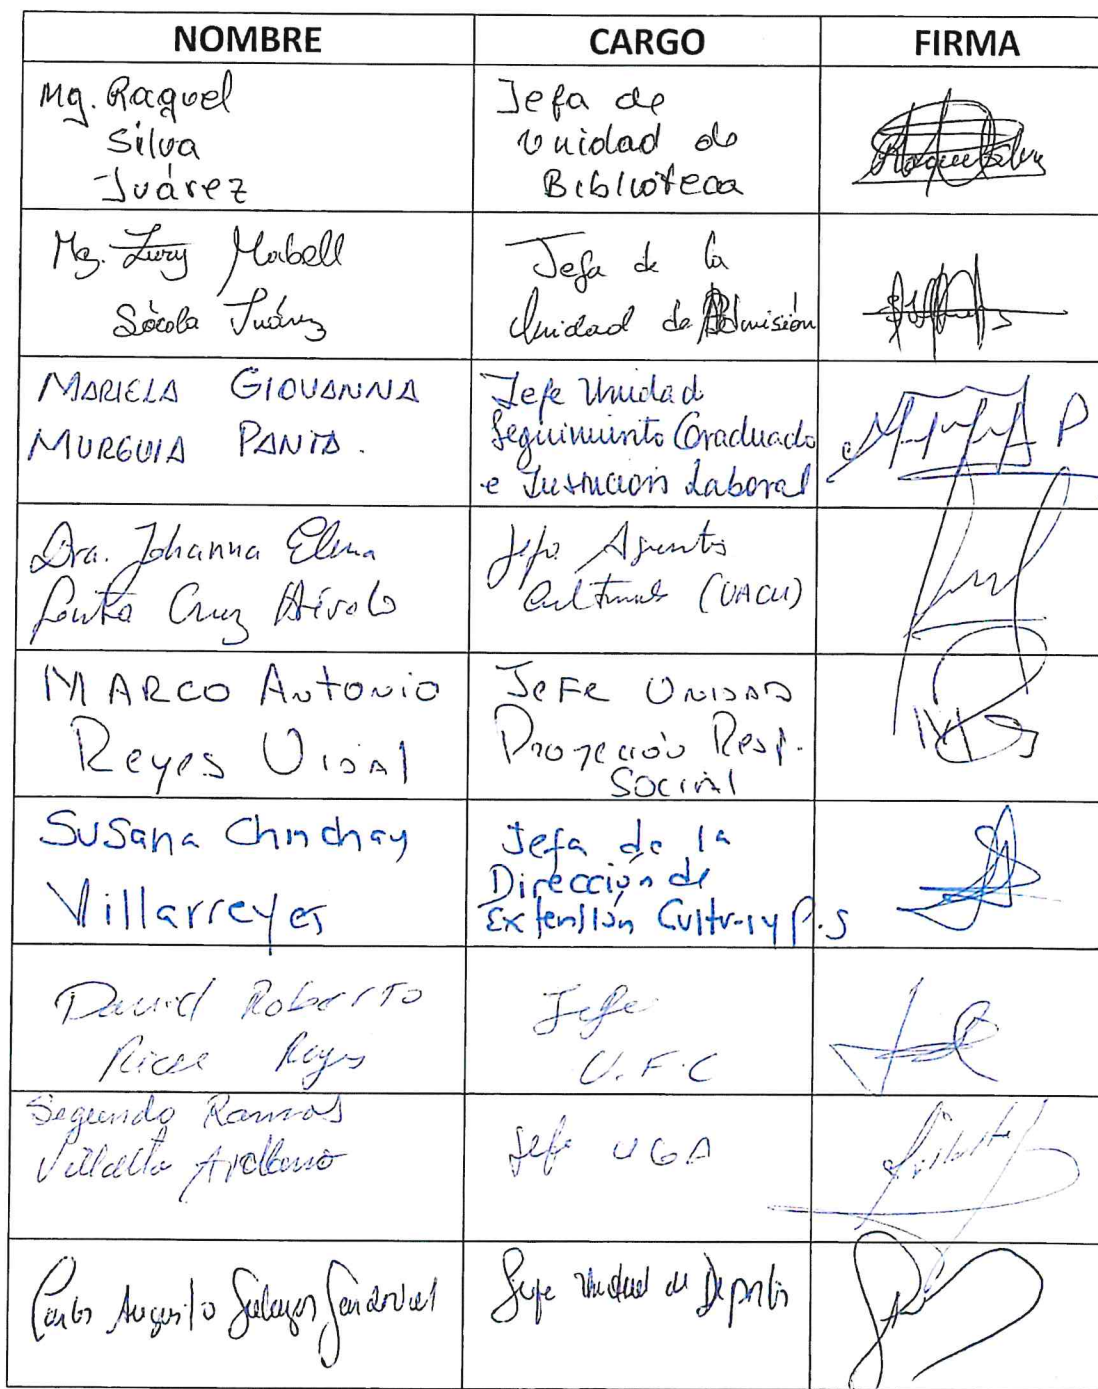 NOMBRE CARGO FIRMA
Mg. Raquel
Silva
Juárez
Jefa de
Unidad de
Biblioteca
Mg. Lury Mabell
Sócola Juárez
Jefa de la
Unidad de Admisión
MARIELA GIOVANNA
MURGUIA PANTA.
Jefe Unidad
Seguimiento Graduado
e Inserción Laboral
P
Dra. Johanna Elena
Cruz Arévalo
Jefa Asuntos
Culturales (UACU)
MARCO Antonio
Reyes VIDAL
JeFe UNIDAD
Proyección Resp.
SOCIAL
Susana Chinchay
Villarreyes
Jefa de la
Dirección de
Extensión Cultural y P.S
David Roberto
Ricse Reyes
Jefe
U.F.C
Segundo Ramos
Villalta Arellano
Jefe UGA
Carlos Augusto Salazar Sandoval
Jefe Unidad de Deportes